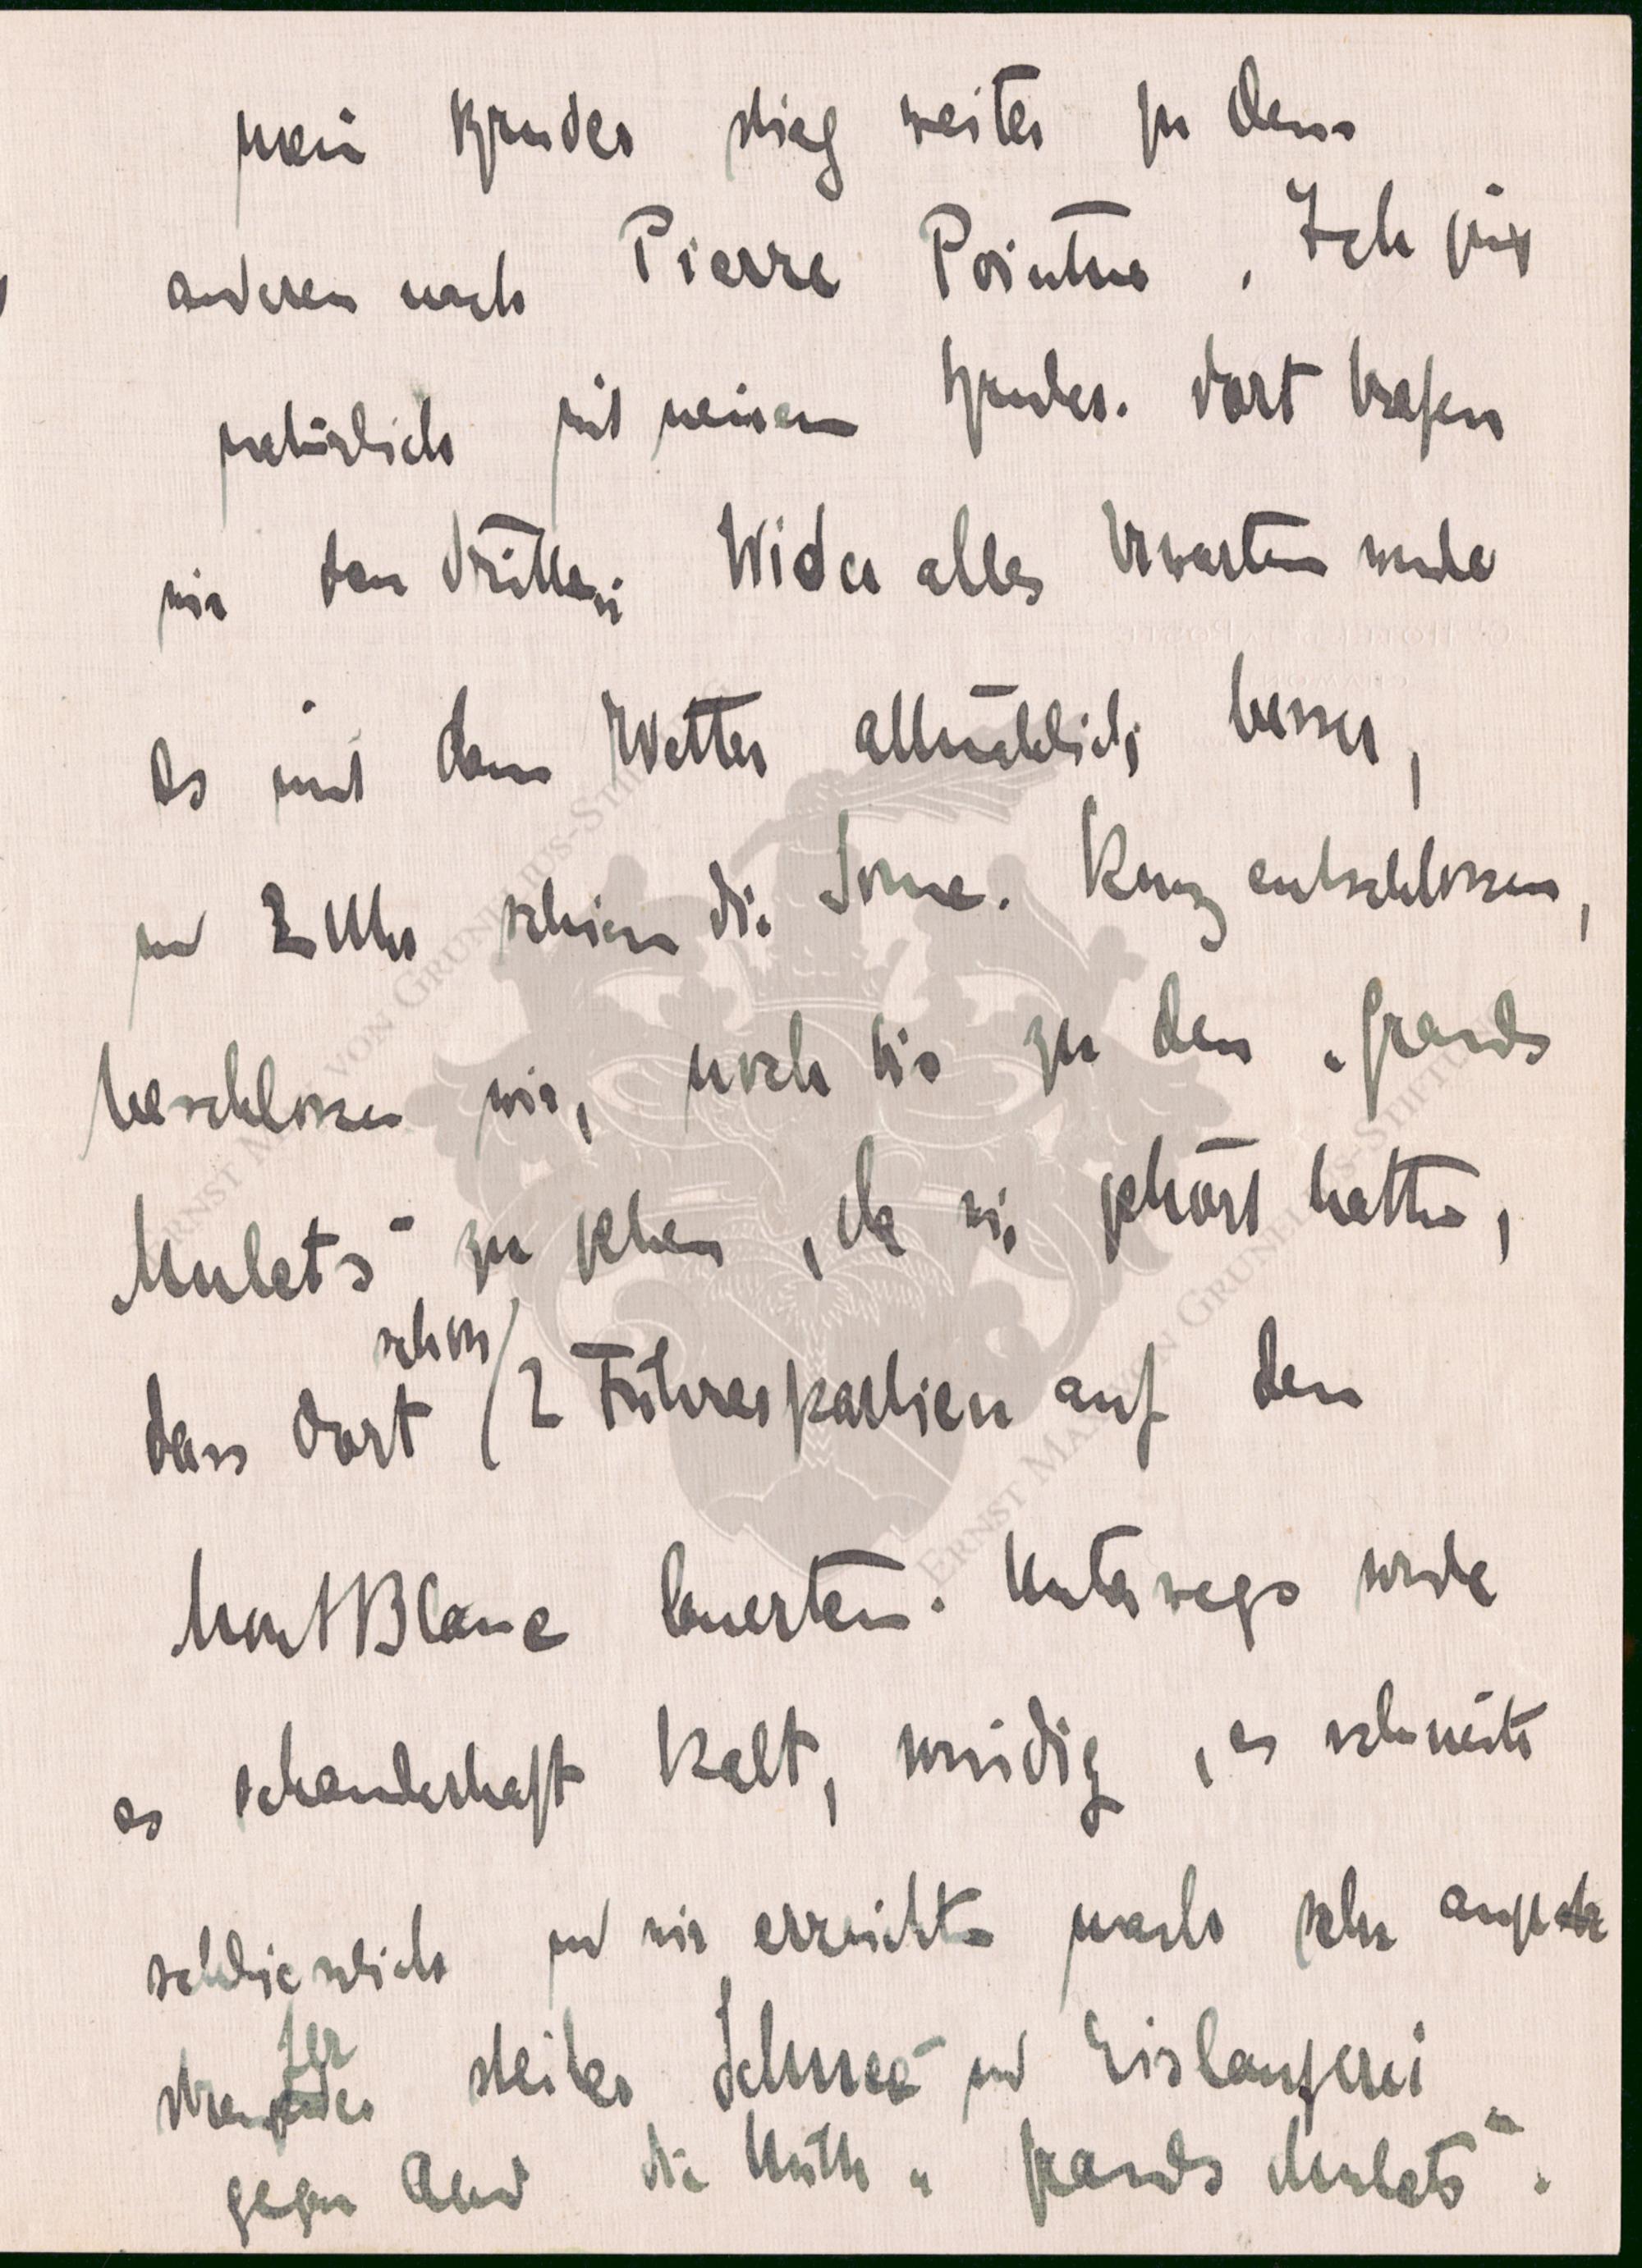 mein Bruder stieg weiter zu dem
anderen nach Pierre Pointue. Ich ging
natürlich mit meinem Bruder. Dort trafen
wir den Dritten. Wider alles Erwarten wurde
es mit dem Wetter allmählich besser,
um 2 Uhr schien die Sonne. Kurz entschlossen,
beschlossen wir, noch bis zu den „grands
Mulets“ zu gehen, da wir gehört hatten,
dass dort schon 2 Führerpartien auf den
MontBlanc lauerten. Unterwegs wurde
es schauderhaft kalt, windig, es schneite
schliesslich und wir erreichten nach sehr
steiler Schnee- und Eislauferei
gegen Abend die Hütte „grands Mulets“.
ERNST MAX VON GRUNELIUS-STIFTUNG
ERNST MAX VON GRUNELIUS-STIFTUNG